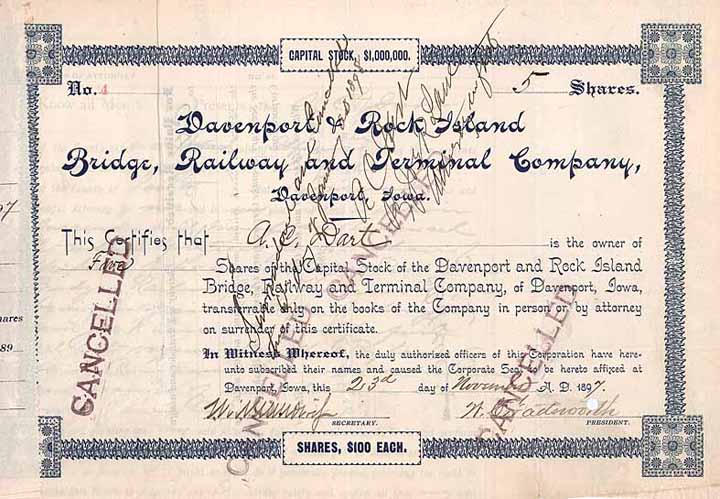 CAPITAL STOCK, $1,000,000.
No. 4
5 Shares.
Davenport & Rock Island
Bridge, Railway and Terminal Company,
Davenport, Iowa.
This Certifies that A. C. Dart is the owner of
Five Shares of the Capital Stock of the Davenport and Rock Island
Bridge, Railway and Terminal Company, of Davenport, Iowa,
transferrable only on the books of the Company in person or by attorney
on surrender of this certificate.
In Witness Whereof, the duly authorised officers of this Corporation have here-
unto subscribed their names and caused the Corporate Seal to be hereto affixed at
Davenport, Iowa, this 23d day of November A. D. 1897.
SECRETARY.
PRESIDENT.
SHARES, $100 EACH.
CANCELLED
CANCELLED
CANCELLED
CANCELLED
97
shares
89